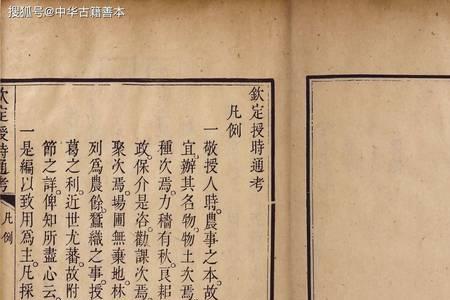 搜狐号@中华古籍善本
欽定授時通考
凡例
一敬授人時。農事之本。故
宜。辨其名物。物土次焉。
種次焉。力穡有秋。良耜
政。保介是咨。勸課次焉。
聚次焉。場圃無棄地。林
列爲農餘。蠶織之事。授
葛之利。近世尤蕃。故附
節之詳。俾知所盡心云。
一是編以致用爲主。凡採
欽定授時通考
凡例